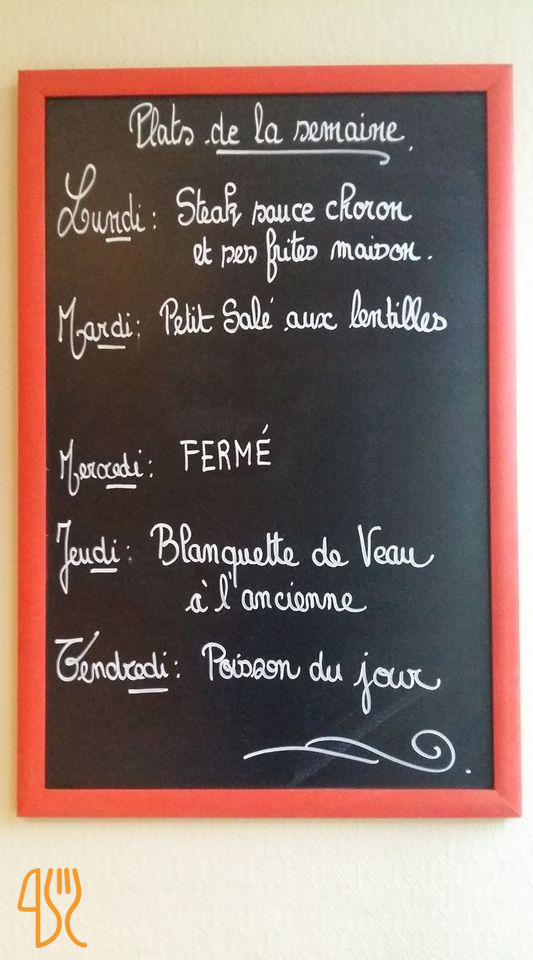 Plats de la semaine.
Lundi : Steak sauce choron
et ses frites maison.
Mardi : Petit Salé aux lentilles
Mercredi : FERMÉ
Jeudi : Blanquette de Veau
à l'ancienne
Vendredi : Poisson du jour